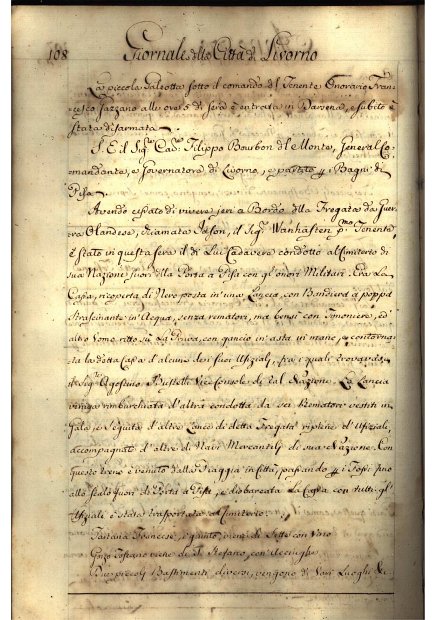 108 Giornali della Città di Livorno
La piccola Galeotta sotto il comando del Tenente Onorario Fran-
cesco Fazzano alle ore 5 di sera è entrata in Darsena, e subito è
stata disarmata.
S. E. il Sig.re Cav.re Filippo Bourbon del Monte, General Co-
mandante, e Governatore di Livorno, è partito p i Bagni di
Pisa.
Avendo cessato di vivere jeri a Bordo della Fregata da Guer-
ra Olandese, chiamata Jason, il Sig.re Wanhasten p.mo Tenente,
è stato in questa sera il di Lui Cadavere condotto al Cimiterio di
sua Nazione fuori della Porta a Pisa con gl'onori Militari. Era La
Cassa, ricoperta di Nero posta in una Lancia, con Bandiera a poppa
strascinante in Acqua, senza rematori, ma bensì con Timoniere, ed
altro Uomo ritto su La Prova, con gancio in asta in mano, e contorna-
ta la detta Cassa d'alcuni dei suoi Ufiziali, fra i quali trovavasi
il Sig.re Agostino Bustelli Vice Console di tal Nazione. La Lancia
veniva rimburchiata d'altra condotta da sei Rematori vestiti in
gala, e seguita d'altre Lance di detta Fregata ripiene d'Ufiziali,
accompagnate d'altre di Navi Mercantili di sua Nazione. Con
questo treno è venuto dalla Spiaggia in Città, passando p i Fossi fino
allo scalo fuori di Porta a Pisa, e disbarcata La Cassa con tutti gl'
Ufiziali è stata trasportata al Cimiterio.
Tartana Francese, è giunto, viene di Sette con Vino
Gozo Toscano viene di S. Stefano, con Acciughe
Più piccoli Bastimenti diversi, vengono di Varj Luoghi &c.